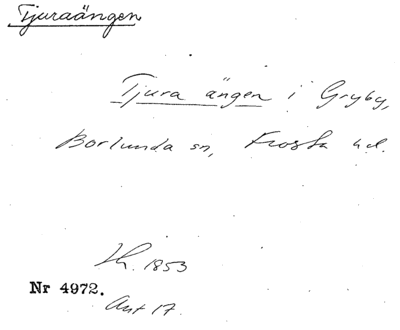 Tjuraängen
Tjura ängen i Gryby,
Borlunda sn, Frosta hd.
1853
Nr 4972.
Ant 17.